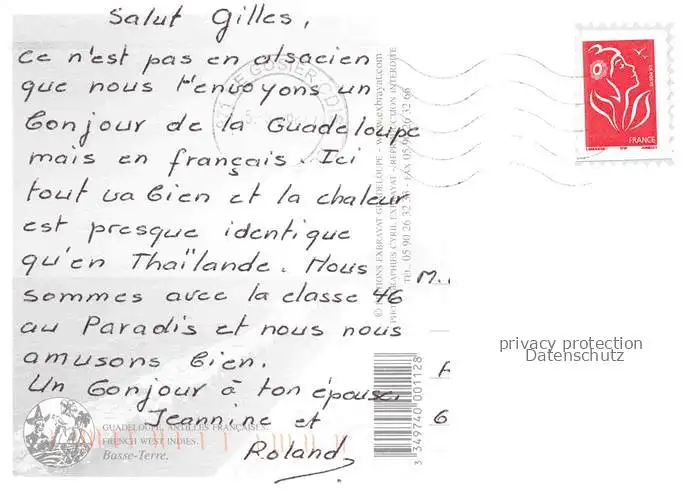 Salut Gilles,
Ce n'est pas en alsacien
que nous t'envoyons un
bonjour de la Guadeloupe
mais en français. Ici
tout va bien et la chaleur
est presque identique
qu'en Thaïlande. Nous
sommes avec la classe 46
au Paradis et nous nous
amusons bien.
Un bonjour à ton épouse.
Jeannine et
Roland
GUADELOUPE, ANTILLES FRANÇAISES.
FRENCH WEST INDIES.
Basse-Terre.
LE GOSIER
© EDITIONS EXBRAYAT GUADELOUPE - www.exbrayat.com
PHOTOGRAPHIES CYRIL EXBRAYAT - REPRODUCTION INTERDITE
TÉL. 05 90 26 32 - FAX 05 90 26 32 66
3 349740 001128
LA POSTE
FRANCE
M.
6
privacy protection
Datenschutz